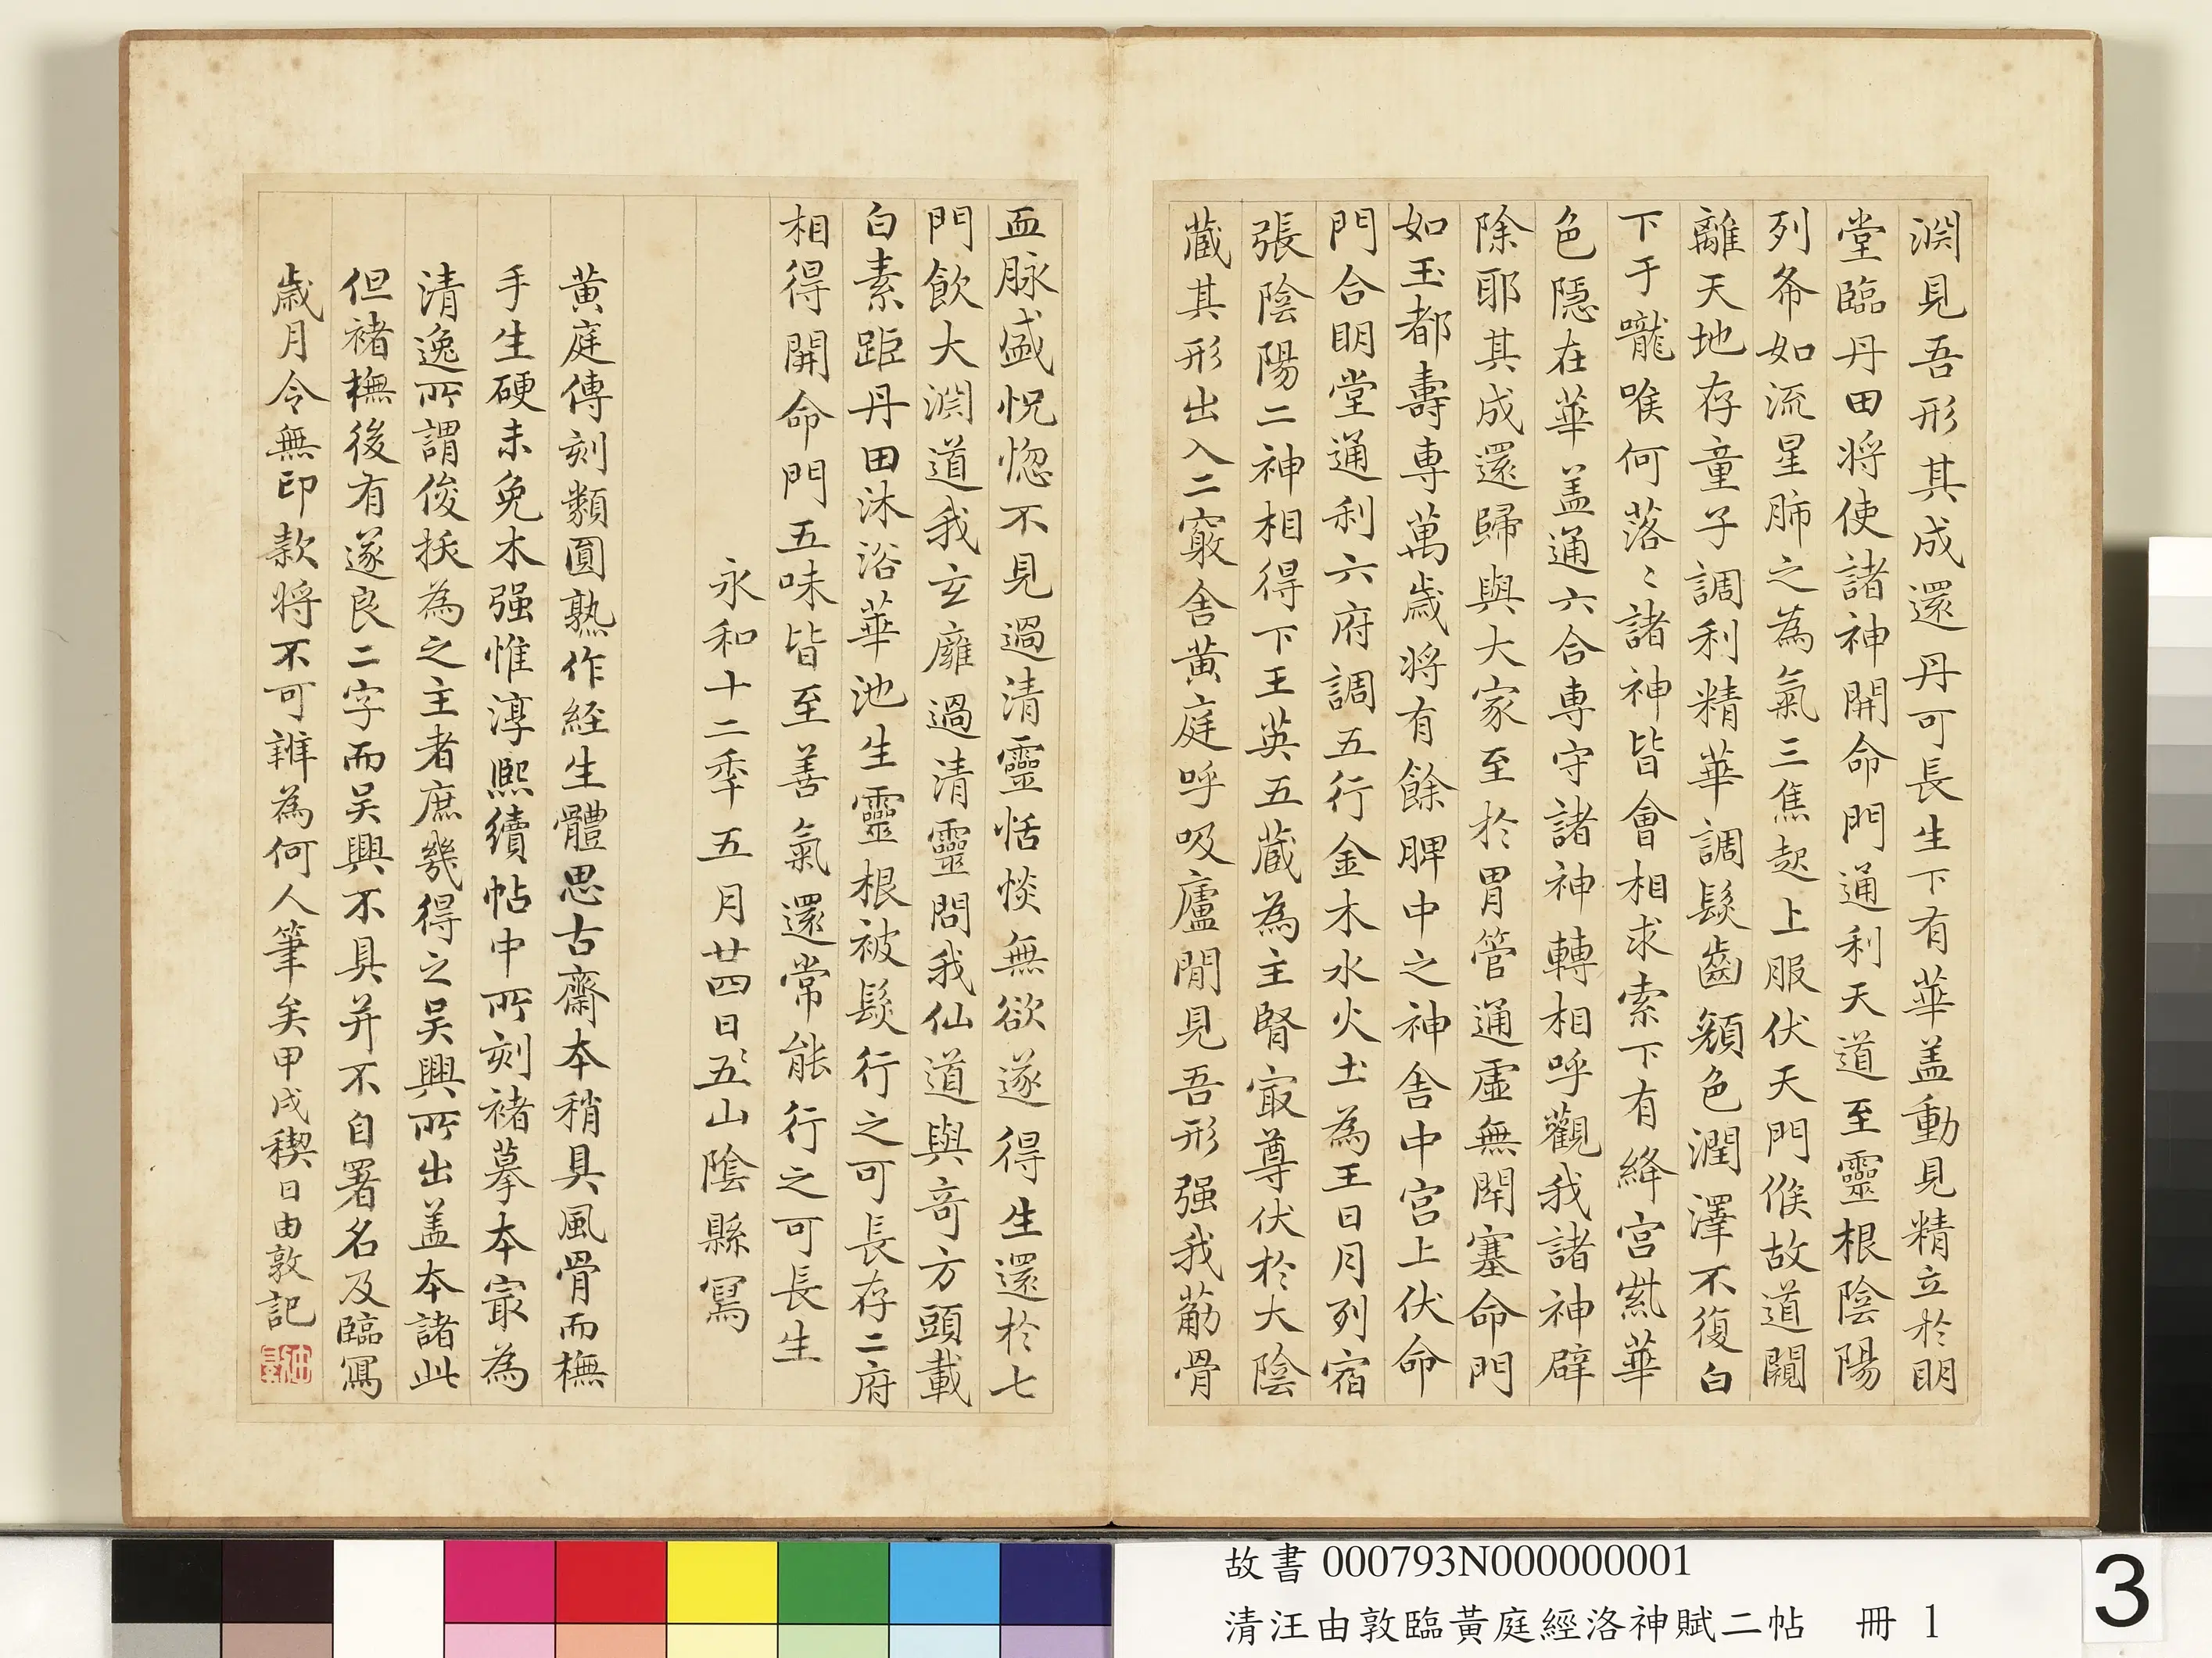 淵見吾形其成還丹可長生下有華盖動見精立於明
堂臨丹田将使諸神開命門通利天道至靈根陰陽
列布如流星肺之為氣三焦起上服伏天門候故道闚
離天地存童子調利精華調髮齒顏色潤澤不復白
下于嚨喉何落〻諸神皆會相求索下有絳宮紫華
色隱在華盖通六合専守諸神轉相呼觀我諸神辟
除耶其成還歸與大家至於胃管通虛無閉塞命門
如玉都壽専萬歲将有餘脾中之神舍中宮上伏命
門合明堂通利六府調五行金木水火土為王日月列宿
張陰陽二神相得下王英五蔵為主腎㝡尊伏於大陰
蔵其形出入二竅舍黄庭呼吸廬間見吾形强我筋骨
血脉盛怳惚不見過清靈恬惔無欲遂得生還於七
門飲大淵道我玄雍過清靈問我仙道與奇方頭載
白素距丹田沐浴華池生靈根被髮行之可長存二府
相得開命門五味皆至善氣還常能行之可長生
永和十二季五月廿四日〻五山陰縣寫
黄庭傳刻類圓熟作経生體思古齋本稍具風骨而橅
手生硬未免木强惟淳熙續帖中所刻褚摹本㝡為
清逸所謂俊拔為之主者庶幾得之吴興所出盖本諸此
但褚橅後有遂良二字而吴興不具并不自署名及臨寫
歲月令無印款将不可辨為何人筆矣甲戌稧日由敦記
故書 000793N000000001
清汪由敦臨黃庭經洛神賦二帖 冊 1
3